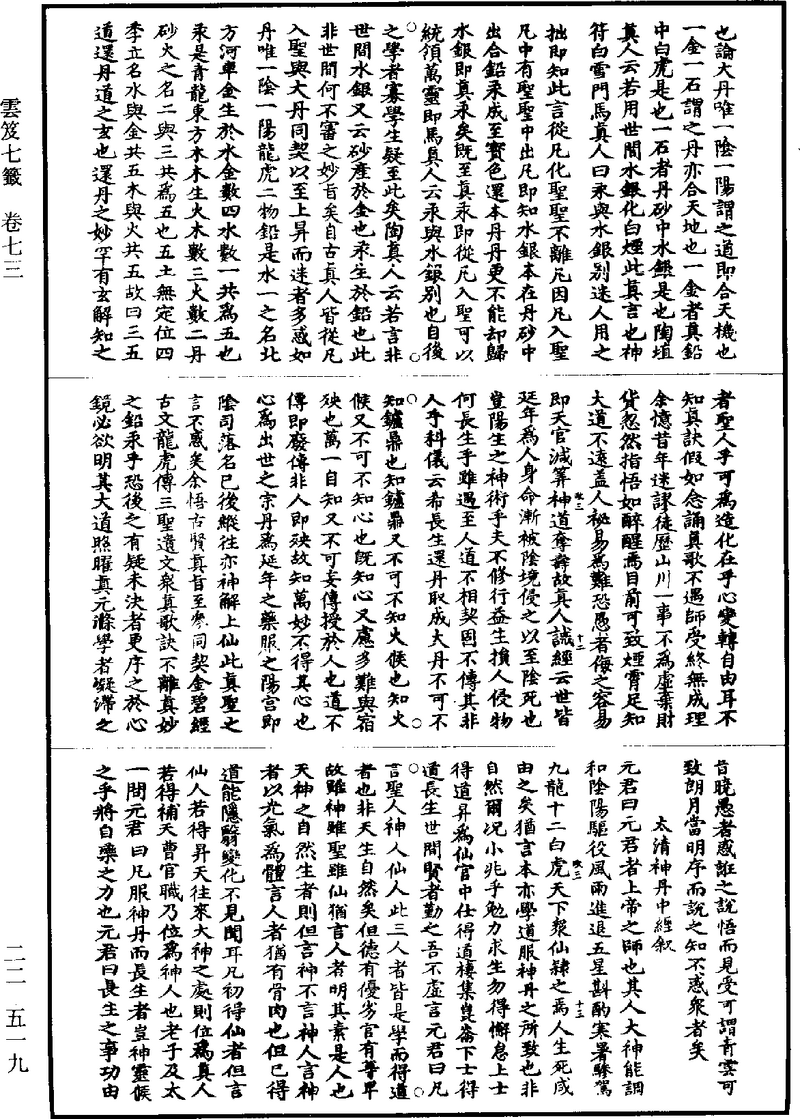 也論大丹唯一陰一陽謂之道即合天機也
一金一石謂之丹亦合天地也一金者真鉛
中白虎是也一石者丹砂中水銀是也陶埴
真人云若用世間水銀化白煙此真言也神
符白雪門馬真人曰汞與水銀別迷人用之
拙即知此言從凡化聖聖不離凡因凡入聖
凡中有聖聖中出凡即知水銀本在丹砂中
出合鉛汞成至寶色還本丹丹更不能却歸
水銀即真汞矣既至真汞即從凡入聖可以
統領萬靈即馬真人云汞與水銀別也自後
之學者寡學生疑至此矣陶真人云若言非
世間水銀又云砂產於金也汞生於鉛也此
非世間何不審之妙旨矣自古真人皆從凡
入聖與大丹同契以至上昇而迷者多惑如
丹唯一陰一陽龍虎二物鉛是水一之名北
方河車金生於水金數四水數一共為五也
汞是青龍東方木木生火木數三火數二丹
砂火之名二與三共為五也五土無定位四
季立名水與金共五木與火共五故曰三五
道還丹道之玄也還丹之妙罕有玄解知之
者聖人乎可為造化在乎心變轉自由耳不
知真訣假如念誦真歌不遇師受終無成理
余憶昔年迷謬徒歷山川一事不為虛棄財
貨忽然指悟如醉醒焉目前可致煙霄足知
大道不遠蓋人秘易為難恐愚者侮之容易
即天官減筭神道奪
壽故真人誡經云世皆
延年為人身命漸被陰境侵之以至陰死也
豈陽生之神術乎夫不修行益生損人侵物
何長生乎雖遇至人道不相契因不傳其非
人乎科儀云希長生還丹取成大丹不可不
知鑪鼎也知鑪鼎又不可不知火候也知火
候又不可不知心也既知心又慮多難與宿
殃也萬一自知又不可妄傳授於人也道不
傳即廢傳非人即殃故知萬妙不得其心也
心為出世之宗丹為延年之藥服之陽宮即
陰司落名已後縱往亦神解上仙此真聖之
言不惑矣余悟古賢真旨至參同契金碧經
古文龍虎傳三聖遺文衆真歌訣不離真妙
之鉛汞乎恐後之有疑未決者更序之於心
鏡必欲明其大道照曜真元滌學者凝滯之
昔曉愚者惑誑之說悟而見受可謂青雲可
致朗月當明序而說之知不惑衆者矣
太清神丹中經叙
元君曰元君者上帝之師也其人大神能調
和陰陽驅役風雨進退五星斟酌寒暑驂駕
九龍十二白虎天下衆仙隸之焉人生死咸
由之矣猶言本亦學道服神丹之所致也非
自然爾况小兆乎勉力求生勿得懈怠上士
得道昇為仙官中仕得道棲集崑崙下士得
道長生世間賢者勤之吾不虛言元君曰凡
言聖人神人仙人此三人者皆是學而得道
者也非天生自然矣但德有優劣官有尊卑
故雖神雖聖雖仙猶言人者明其素是人也
天神之自然生者則但言神不言神人言神
者以光氣為體言人者猶有骨肉也但已得
道能隱翳變化不見聞耳凡初得仙者但言
仙人若得昇天往來大神之處則位為真人
若得補天曹官職乃位為神人也老子及太
一問元君曰凡服神丹而長生者豈神靈候
之乎將自藥之力也元君曰長生之事功由
雲笈七籤 卷七三
二二—五一九